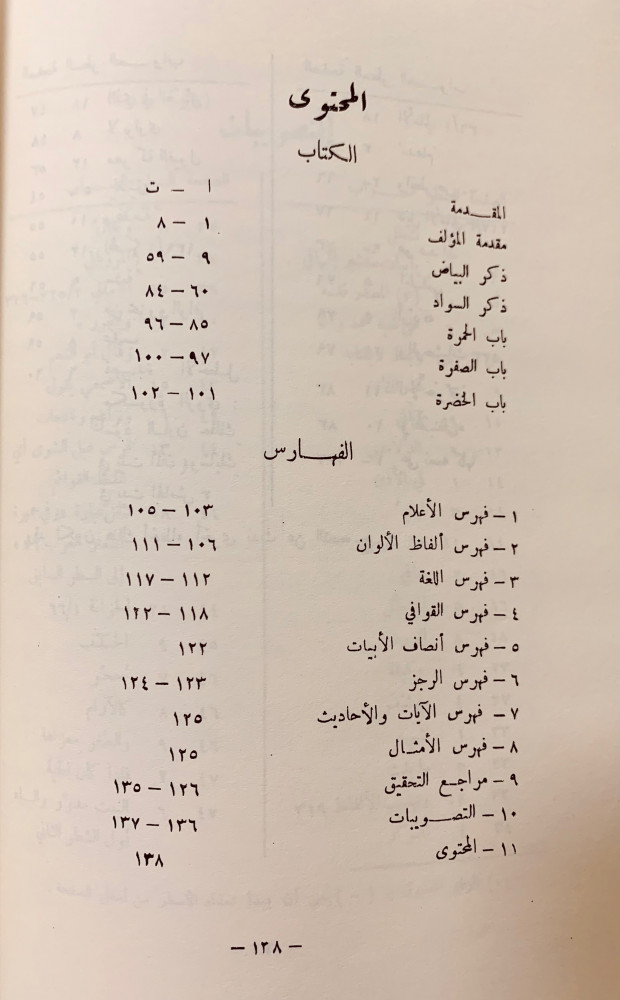 المحتوى
الكتاب
المقدمة ا - ت
مقدمة المؤلف ١ - ٨
ذكر البياض ٩ - ٥٩
ذكر السواد ٦٠ - ٨٤
باب الحمرة ٨٥ - ٩٦
باب الصفرة ٩٧ - ١٠٠
باب الخضرة ١٠١ - ١٠٢
الفهارس
١ - فهرس الأعلام ١٠٣ - ١٠٥
٢ - فهرس ألفاظ الألوان ١٠٦ - ١١١
٣ - فهرس اللغة ١١٢ - ١١٧
٤ - فهرس القوافي ١١٨ - ١٢٢
٥ - فهرس أنصاف الأبيات ١٢٢
٦ - فهرس الرجز ١٢٣ - ١٢٤
٧ - فهرس الآيات والأحاديث ١٢٥
٨ - فهرس الأمثال ١٢٥
٩ - مراجع التحقيق ١٢٦ - ١٣٥
١٠ - التصويبات ١٣٦ - ١٣٧
١١ - المحتوى ١٣٨
- ١٣٨ -